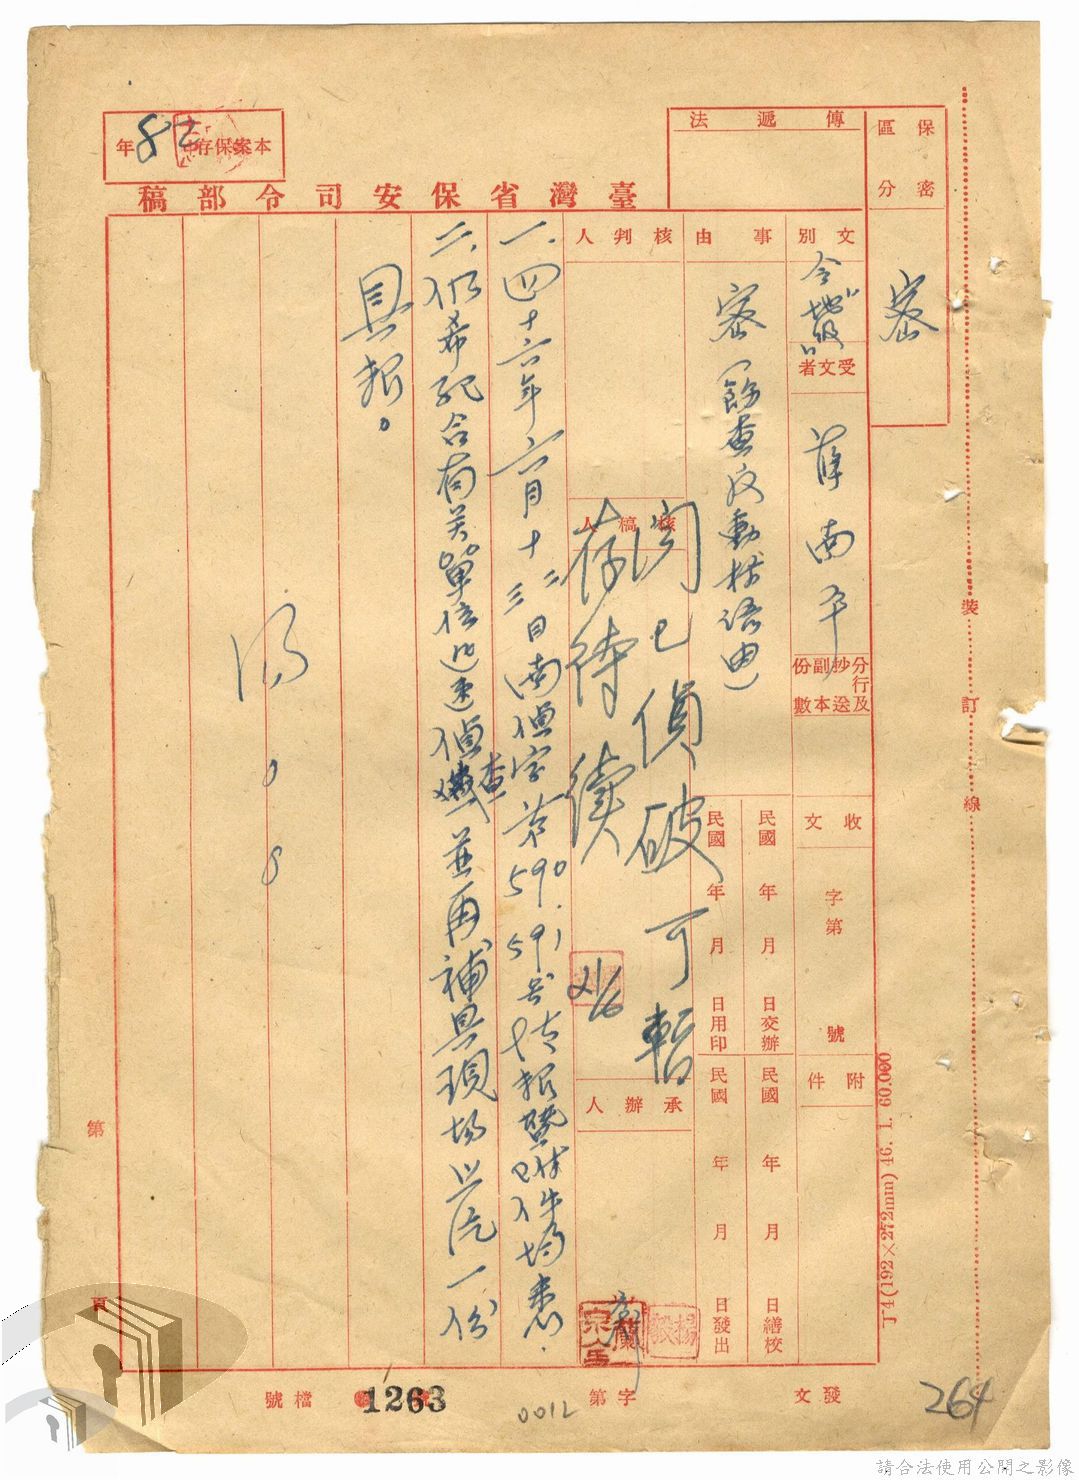 保密
區分
密
傳遞法
本案保存
年
臺灣省保安司令部稿
文別
令
受文者
薛南平
分行及抄送副本份數
收文
字第
號
附件
事由
密(飭查反動標語由)
民國 年 月 日交辦
民國 年 月 日繕校
民國 年 月 日用印
民國 年 月 日發出
核判人
核稿人
承辦人
閱已偵破可暫
存待續
21/6
楊
一、四十六年六月十三日南偵字第590.591號情報暨附件均悉.
二、仍希配合有关單位迅速偵查並再補具現場照片一份
具報。
裝
訂
線
第
頁
丁4(192×272mm) 46. 1. 60.000
發文
字第
0012
檔號
1263
264
請合法使用公開之影像